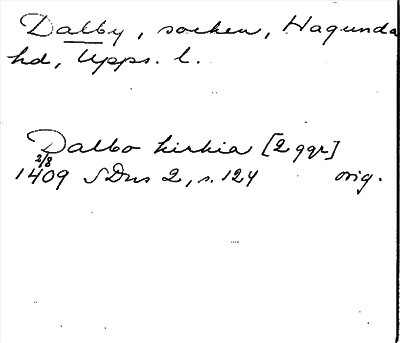 Dalby, socken, Hagunda
hd, Upps. l.
Dalbo kirkia [2 ggr]
2/8
1409 SDns 2, s. 124 orig.